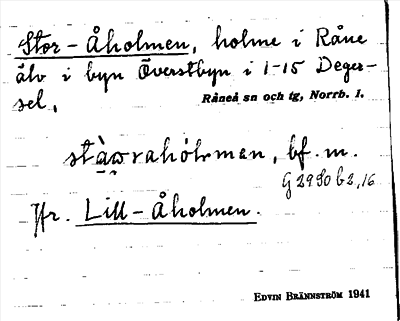 Stor-Åholmen, holme i Råne
älv i byn Överstbyn i 1-15 Deger-
sel.
Råneå sn och tg, Norrb. l.
bf. m.
G 2990 b 2, 16
Jfr. Lill-Åholmen.
EDVIN BRÄNNSTRÖM 1941